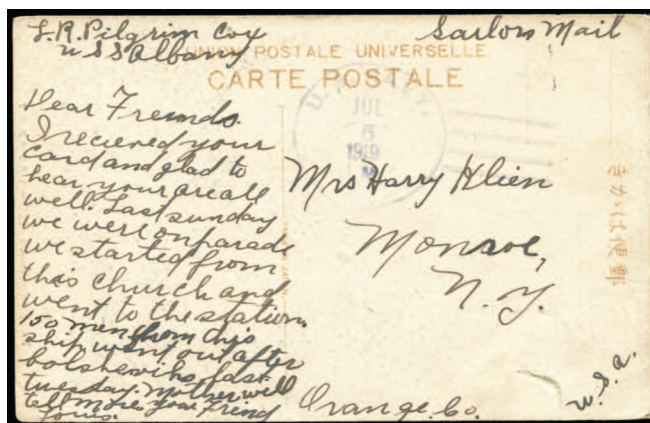 L.R. Pilgrim Cox
U S S Albany
Sailors Mail
UNION POSTALE UNIVERSELLE
CARTE POSTALE
Dear Freinds.
I recieved your
card and glad to
hear your are all
well. Last sunday
we were on parade
we started from
this church and
went to the station.
150 men from this
ship went out after
bolsheviks last
tuesday. Mother will
tell more your Freind
Louis.
JUL
5
1919
Mrs Harry Klien
Monroe,
N.Y.
Orange. Co.
U.S.A.
きがは便郵